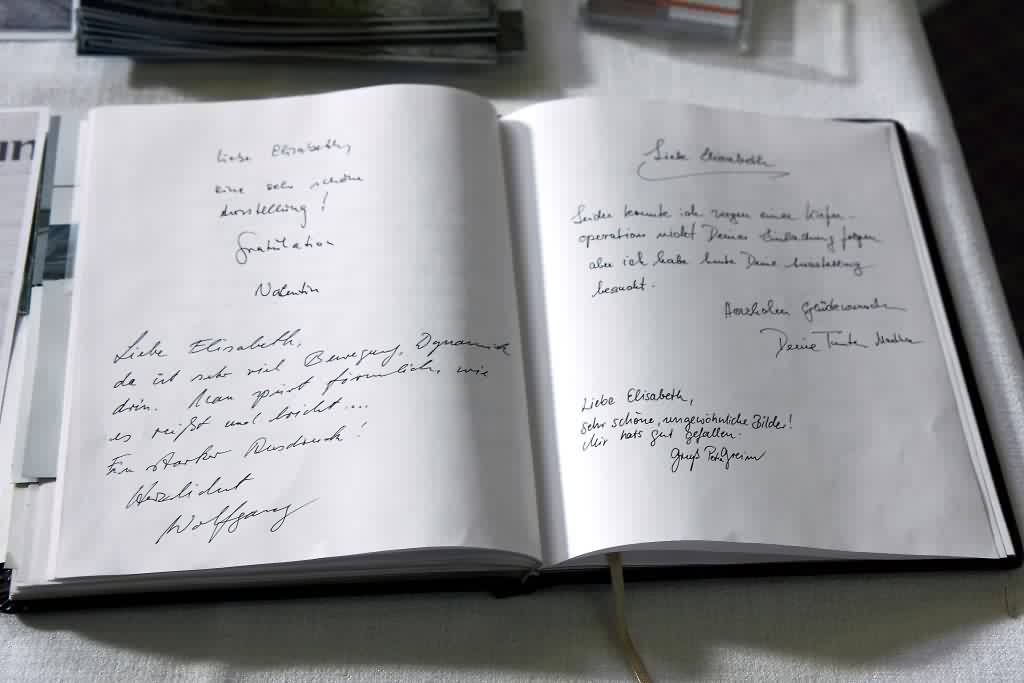 un
Liebe Elisabeth,
eine sehr schöne
Ausstellung!
Gratulation
Valentin
Liebe Elisabeth,
da ist sehr viel Bewegung, Dynamik
drin. Man spürt förmlich, wie
es reißt und bricht...
Ein starker Ausdruck!
Herzlichst
Wolfgang
Liebe Elisabeth
Leider konnte ich wegen einer Kiefer-
operation nicht Deiner Einladung folgen
aber ich habe heute Deine Ausstellung
besucht.
Herzlichen Glückwunsch
Deine Tante
Liebe Elisabeth,
sehr schöne, ungewöhnliche Bilder!
Mir hats gut gefallen.
Gruß